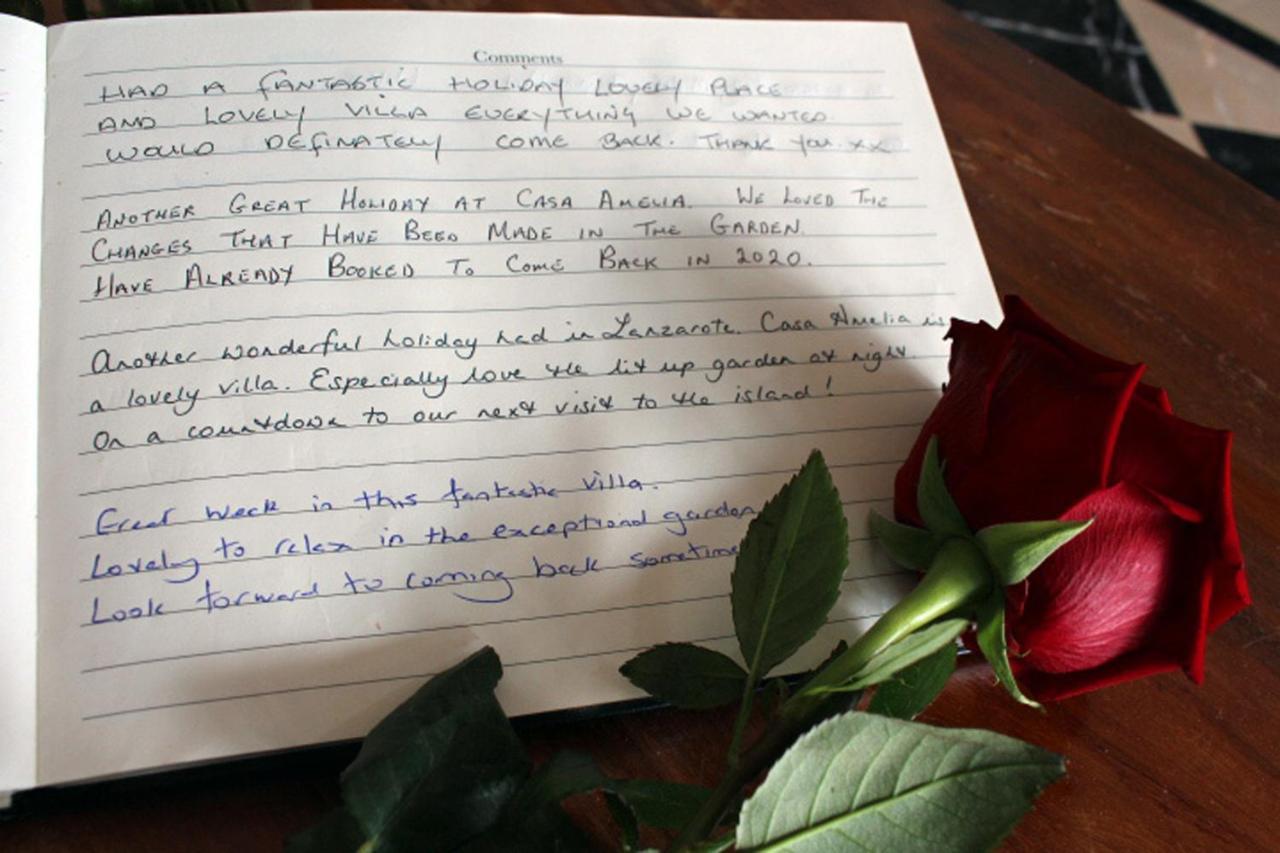 Comments
HAD A FANTASTIC HOLIDAY LOVELY PLACE
AND LOVELY VILLA EVERYTHING WE WANTED.
WOULD DEFINATELY COME BACK. THANK YOU. XX
ANOTHER GREAT HOLIDAY AT CASA AMELIA. WE LOVED THE
CHANGES THAT HAVE BEED MADE IN THE GARDEN.
HAVE ALREADY BOOKED TO COME BACK IN 2020.
Another wonderful holiday had in Lanzarote. Casa Amelia is
a lovely villa. Especially love the lit up garden at night.
On a countdown to our next visit to the island!
Great week in this fantastic villa.
Lovely to relax in the exceptional garden
Look forward to coming back sometime